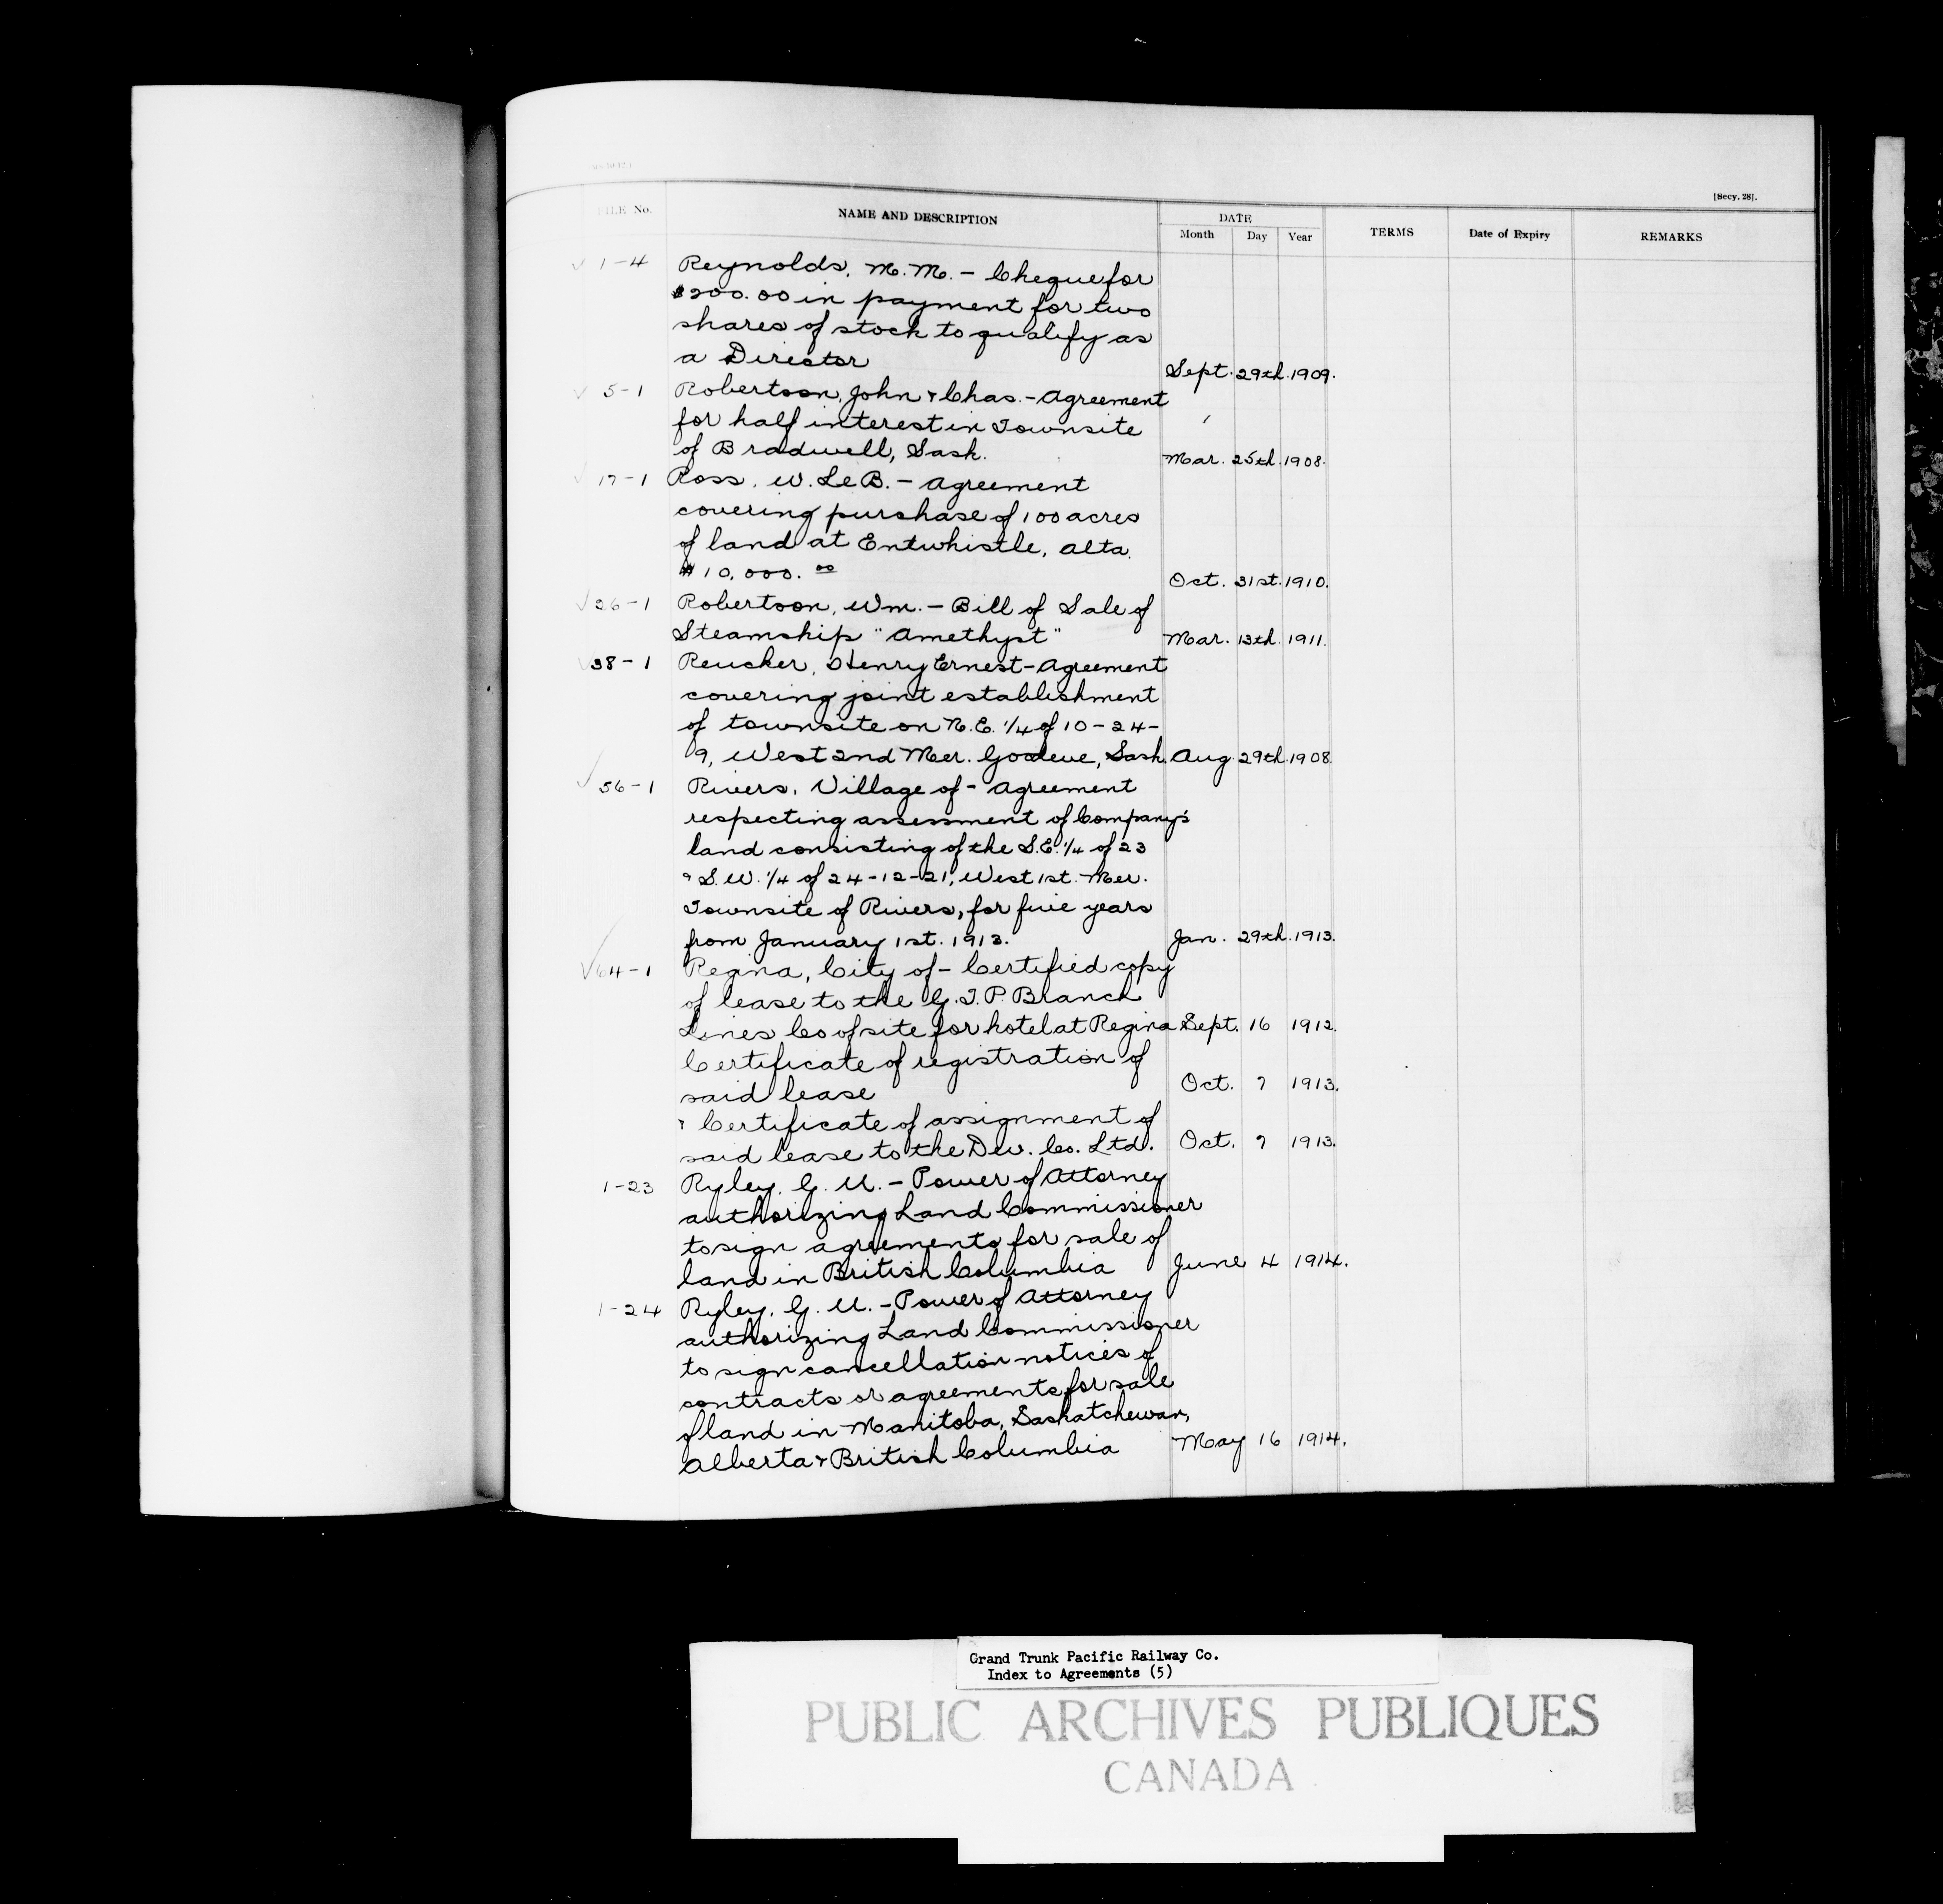 [Secy. 28].
FILE No. NAME AND DESCRIPTION DATE Month Day Year TERMS Date of Expiry REMARKS
√ 1-4 Reynolds, M. M. - Cheque for
$200.00 in payment for two
shares of stock to qualify as
a Director Sept. 29th. 1909.
√ 5-1 Robertson, John & Chas. - Agreement
for half interest in Townsite
of Bradwell, Sask. Mar. 25th. 1908.
√ 17-1 Ross, W. Le B. - Agreement
covering purchase of 100 acres
of land at Entwhistle, Alta.
$10,000.00 Oct. 31st. 1910.
√ 26-1 Robertson, Wm. - Bill of Sale of
Steamship "Amethyst" Mar. 13th. 1911.
√ 38-1 Reucker, Henry Ernest - Agreement
covering joint establishment
of townsite on N.E. 1/4 of 10-24-
9, West 2nd Mer. Goodeve, Sask. Aug. 29th. 1908.
√ 56-1 Rivers, Village of - Agreement
respecting assessment of Company's
land consisting of the S.E. 1/4 of 23
& S.W. 1/4 of 24-12-21, West 1st. Mer.
Townsite of Rivers, for five years
from January 1st. 1913. Jan. 29th. 1913.
√ 64-1 Regina, City of - Certified copy
of lease to the G.T.P. Branch
Lines Co of site for hotel at Regina Sept. 16 1912.
Certificate of registration of
said lease Oct. 7 1913.
& Certificate of assignment of
said lease to the Dev. Co. Ltd. Oct. 7 1913.
1-23 Ryley, G. U. - Power of Attorney
authorizing Land Commissioner
to sign agreements for sale of
land in British Columbia June 4 1914.
1-24 Ryley, G. U. - Power of Attorney
authorizing Land Commissioner
to sign cancellation notices of
contracts or agreements for sale
of land in Manitoba, Saskatchewan,
Alberta & British Columbia May 16 1914.
Grand Trunk Pacific Railway Co.
Index to Agreements (5)
PUBLIC ARCHIVES PUBLIQUES
CANADA